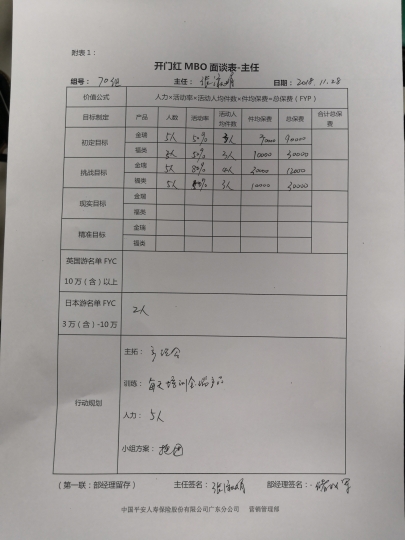 附表1：
开门红 MBO 面谈表-主任
组号：70组 主任：张 娟 日期：2018.11.28
价值公式 人力×活动率×活动人均件数×件均保费=总保费（FYP）
目标制定 产品 人数 活动率 活动人均件数 件均保费 总保费 合计总保费
初定目标 金瑞 5人 50% 3人 90000
福类 5人 50% 3人 10000 30000
挑战目标 金瑞 5人 80% 4人 30000 12000
福类 5人 80% 3人 10000 30000
现实目标 金瑞
福类
精准目标 金瑞
福类
英国游名单 FYC
10 万（含）以上
日本游名单 FYC 2人
3 万（含）-10 万
行动规划
主拓：
训练：每天培训 产品
人力：5人
小组方案：
（第一联：部经理留存） 主任签名：张 娟 部经理签名：
中国平安人寿保险股份有限公司广东分公司 营销管理部